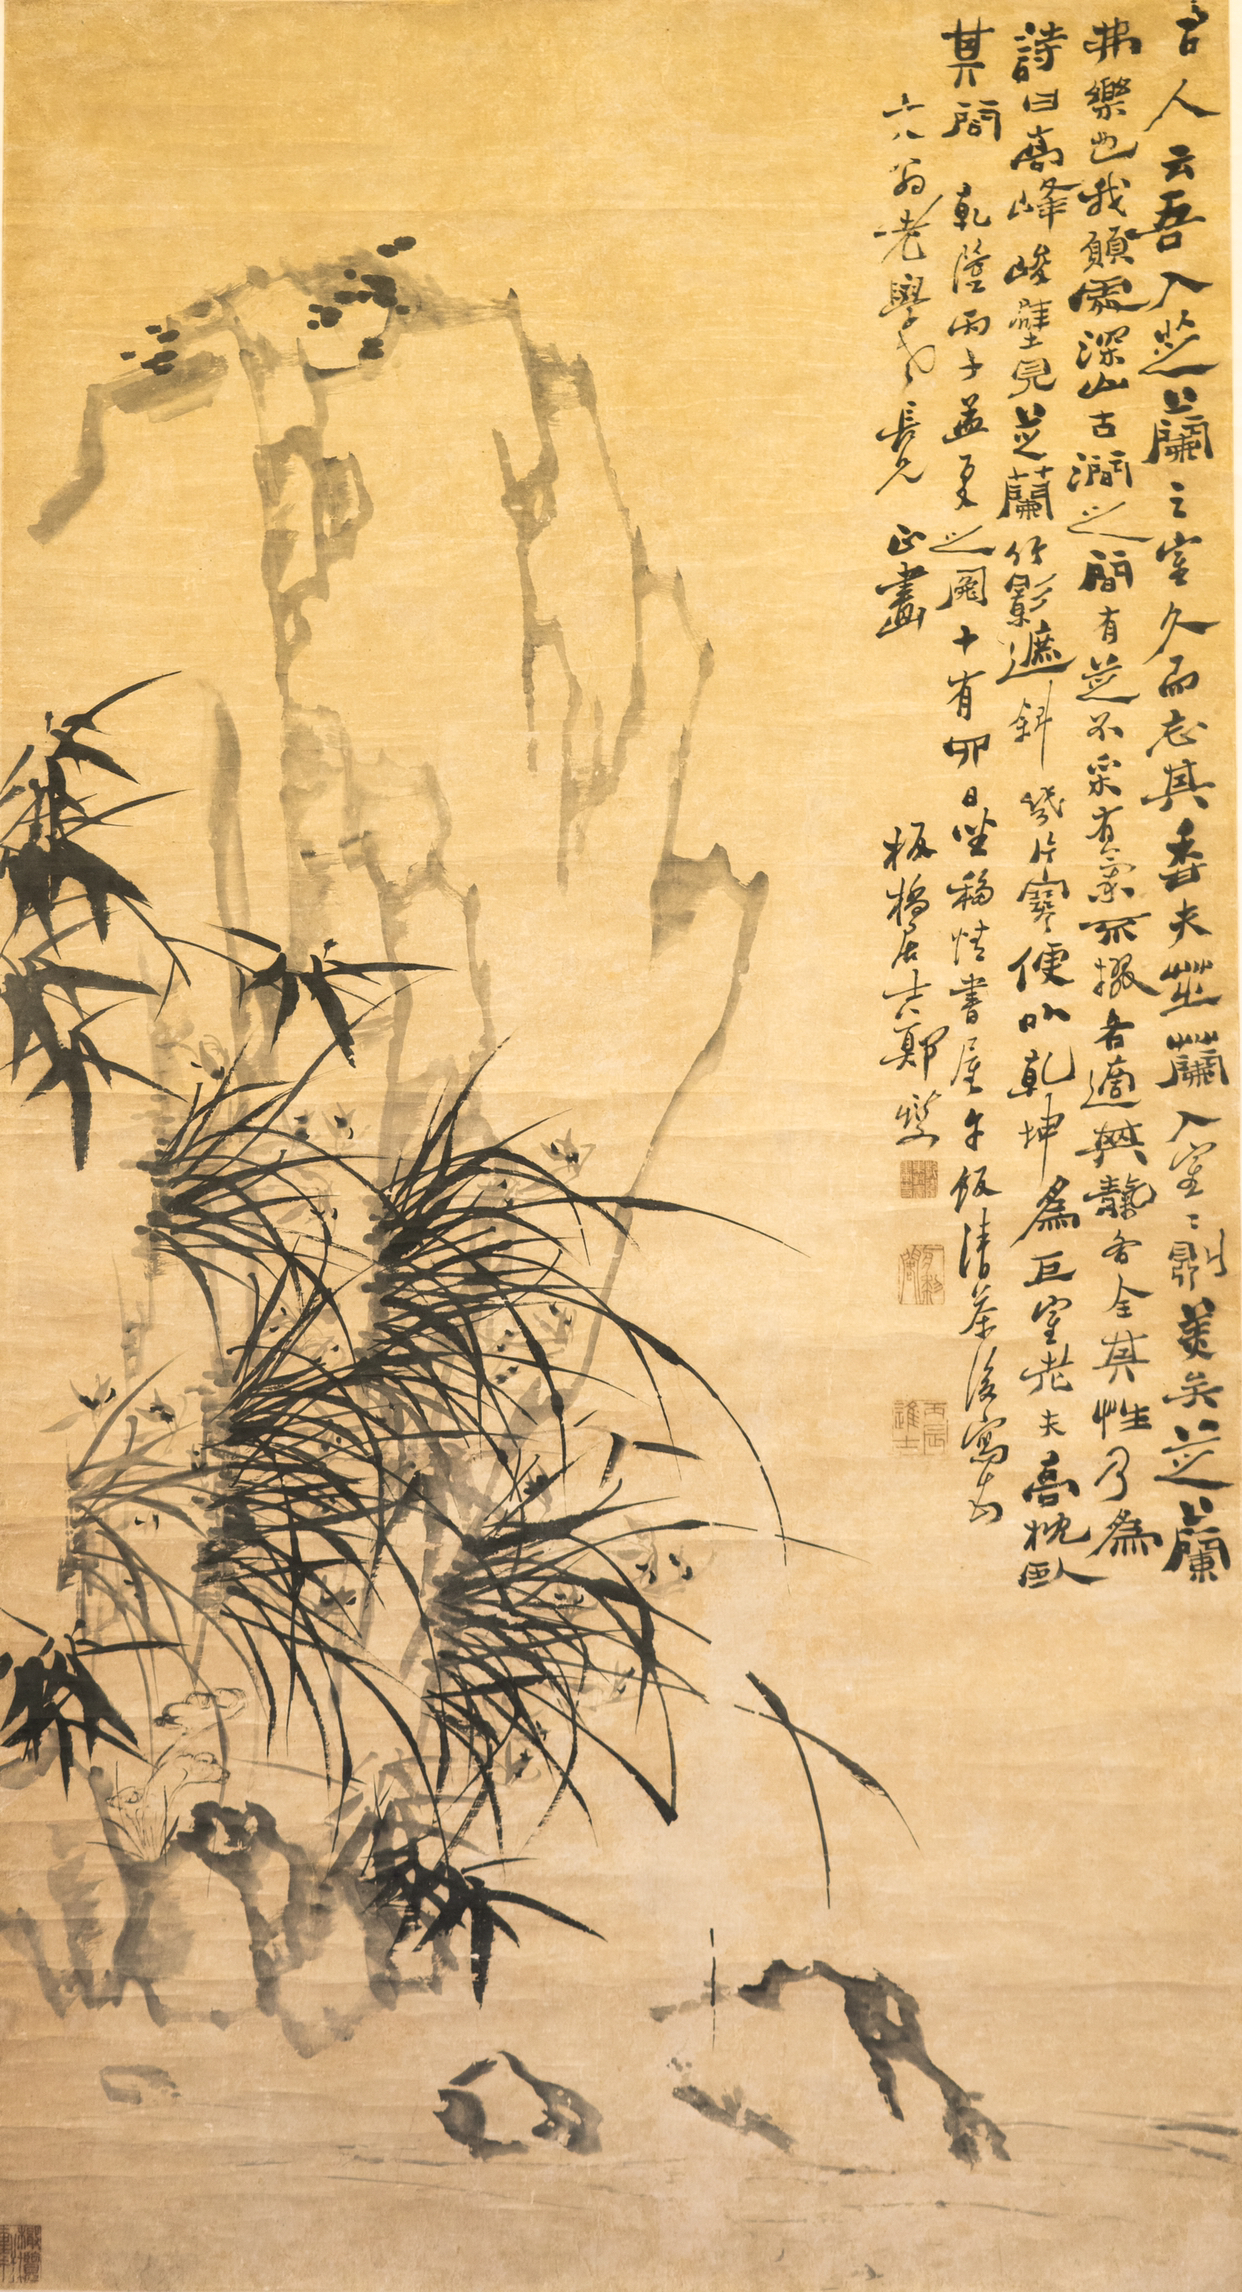 昔人云吾入芝蘭之室久而忘其香夫芝蘭入室室則美矣芝蘭
弗樂也我願居深山古澗之間有芝不采有蘭不掇各適其天各全其性乃爲
詩曰高峰峻壁見芝蘭竹影遮斜幾片寒便以乾坤爲巨室老夫高枕臥
其間 乾隆丙子孟夏之圖十有卯日坐移情書屋午飯清茶後寫
六八翁老學長兄 正畫
板橋居士鄭燮
丙辰進士